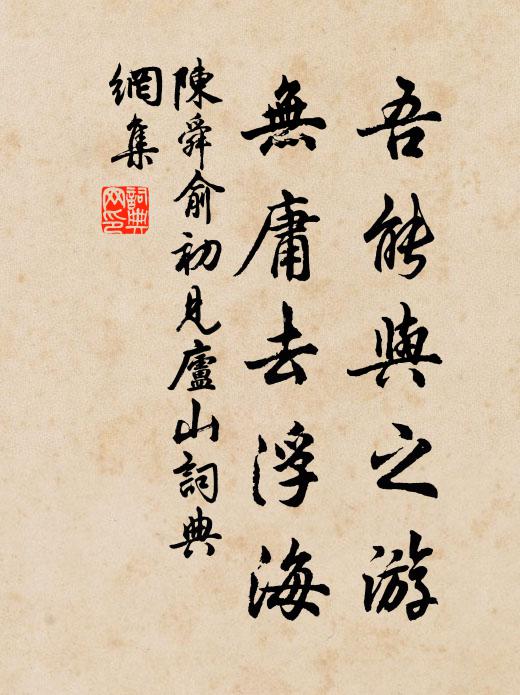 吾能與之游
無庸去浮海
陳舜俞初見廬山詞典
網集
詞典網印